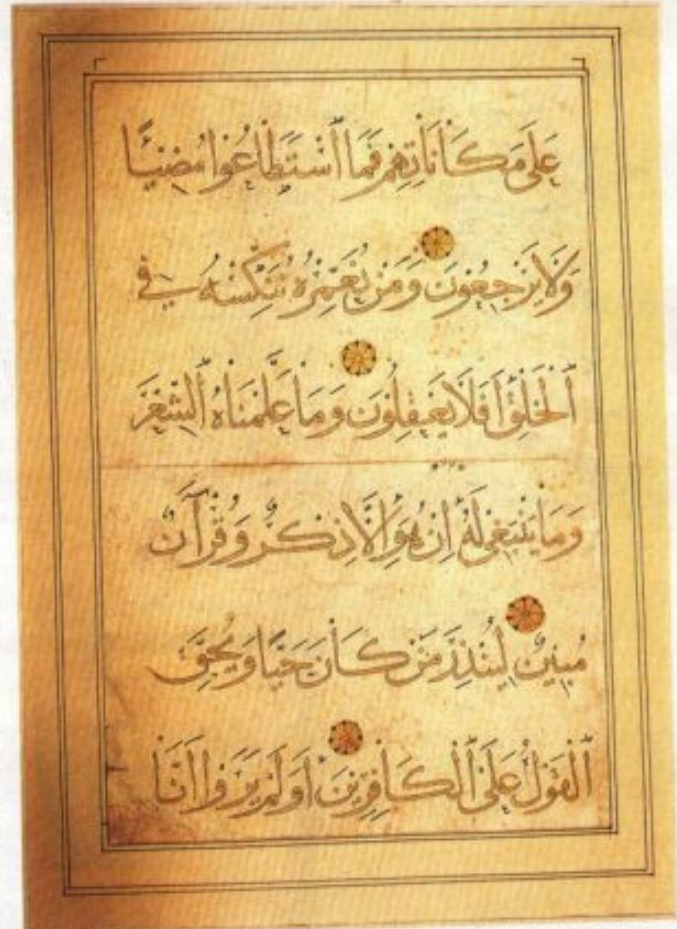 عَلَى مَكَانَاتِهِمْ فَمَا ٱسْتَطَاعُوا مُضِيًّا
وَلَا يَرْجِعُونَ وَمَنْ نُعَمِّرْهُ نُنَكِّسْهُ فِي
ٱلْخَلْقِ أَفَلَا يَعْقِلُونَ وَمَا عَلَّمْنَاهُ ٱلشِّعْرَ
وَمَا يَنْبَغِي لَهُ إِنْ هُوَ إِلَّا ذِكْرٌ وَقُرْآنٌ
مُبِينٌ لِيُنْذِرَ مَنْ كَانَ حَيًّا وَيَحِقَّ
ٱلْقَوْلُ عَلَى ٱلْكَافِرِينَ أَوَلَمْ يَرَوْا أَنَّا